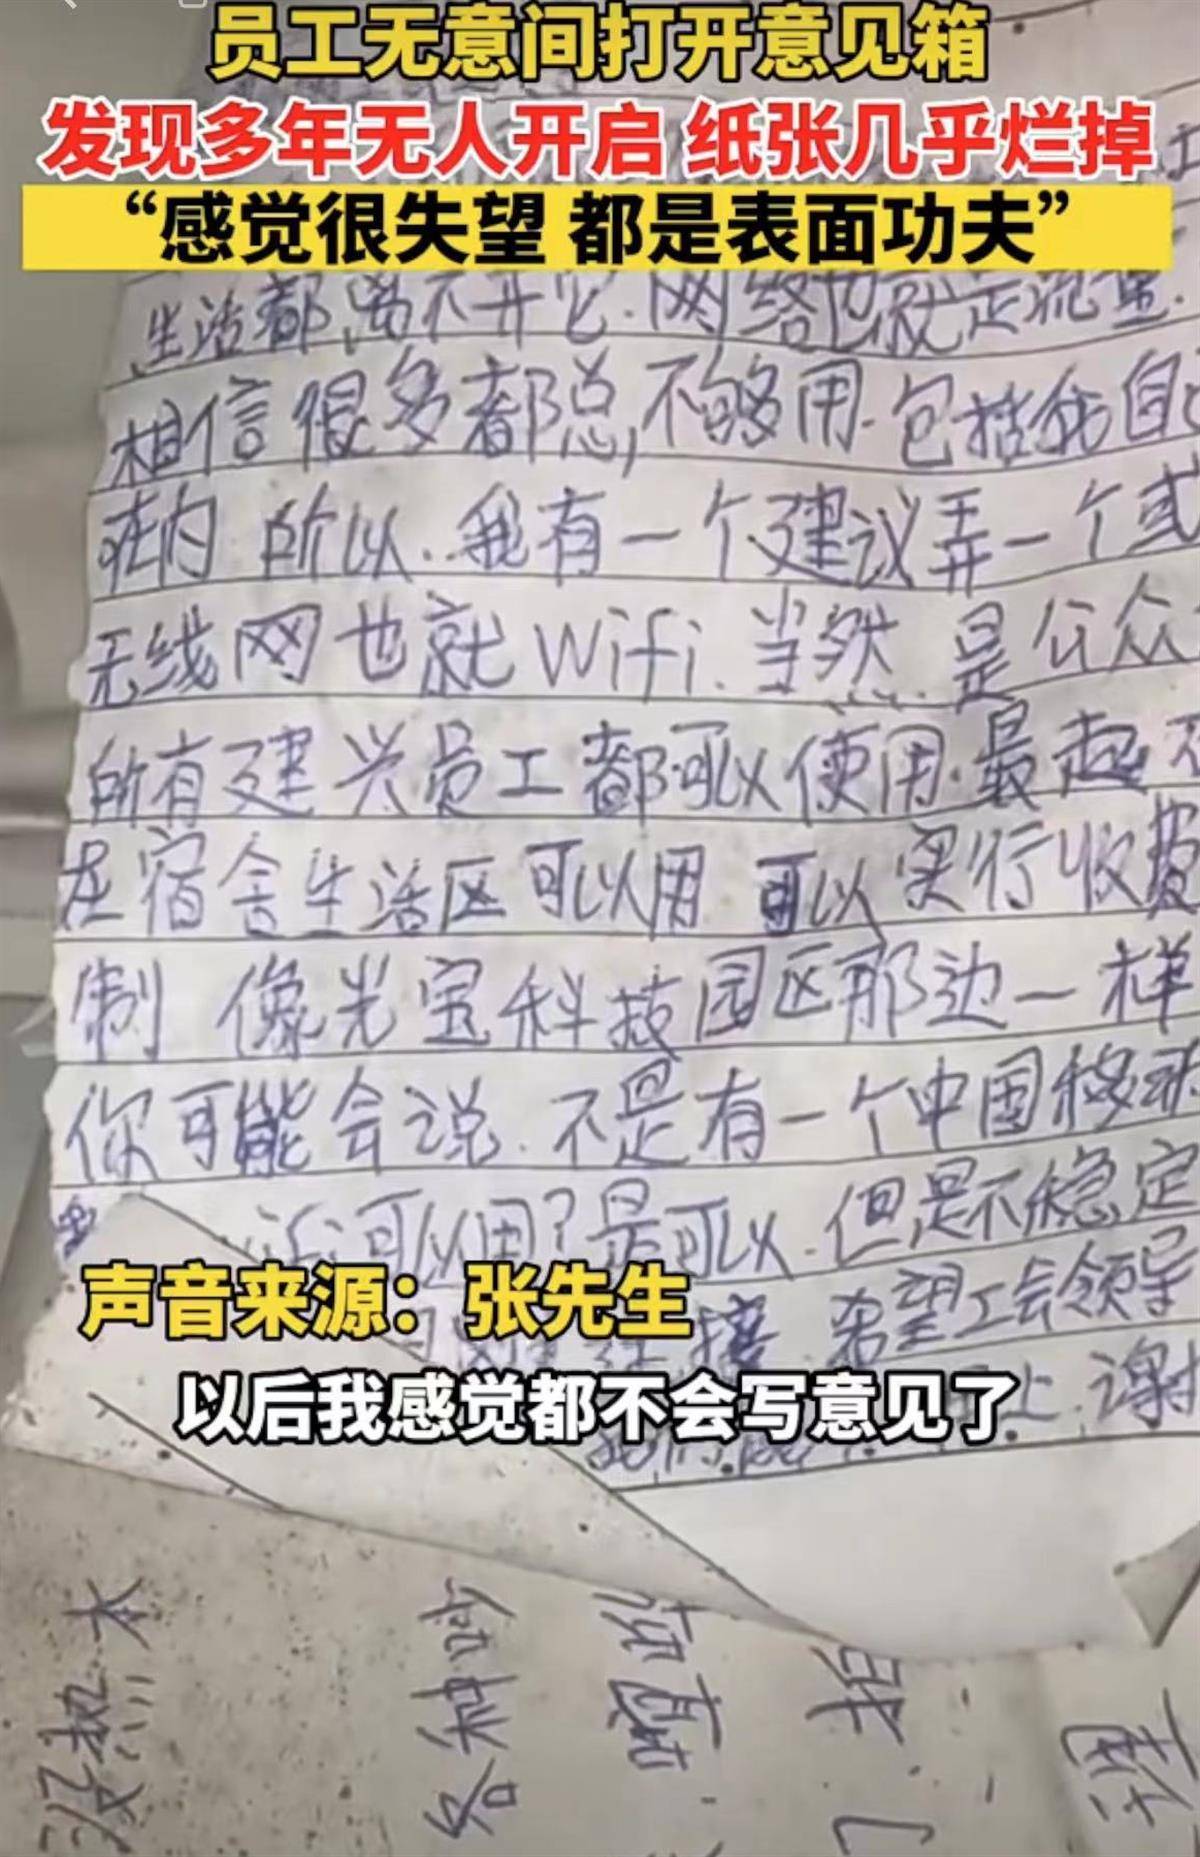 员工无意间打开意见箱
发现多年无人开启 纸张几乎烂掉
“感觉很失望 都是表面功夫”
生活都离不开它.网络也就是流量.
相信很多都总,不够用.包括我自己
在内 所以.我有一个建议弄一个
无线网也就Wifi.当然 是公众
所有建兴员工都可以使用.最起
在宿舍生活区可以用 可以实行收费
制 像光宝科技园区那边一样
你可能会说.不是有一个中国移动
可以用?是可以.但是不稳定
声音来源：张先生
希望工会领导
以后我感觉都不会写意见了
上.谢
没热水
各种
了
理